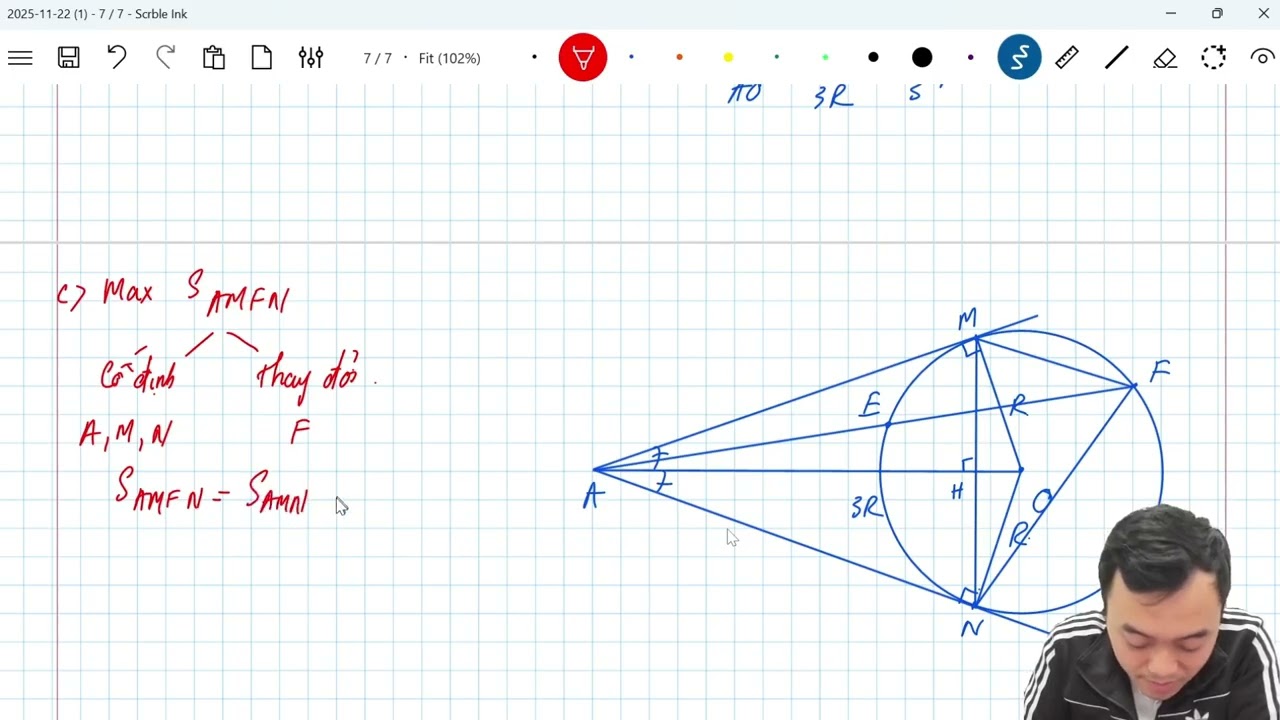 2025-11-22 (1) - 7 / 7 - Scrble Ink
7 / 7 · Fit (102%)
AO 3R 5
c) Max S AMFN
Cố định thay đổi .
A, M, N F
S AMFN = S AMN
M
F
E
R
A
H
3R
O
R
N